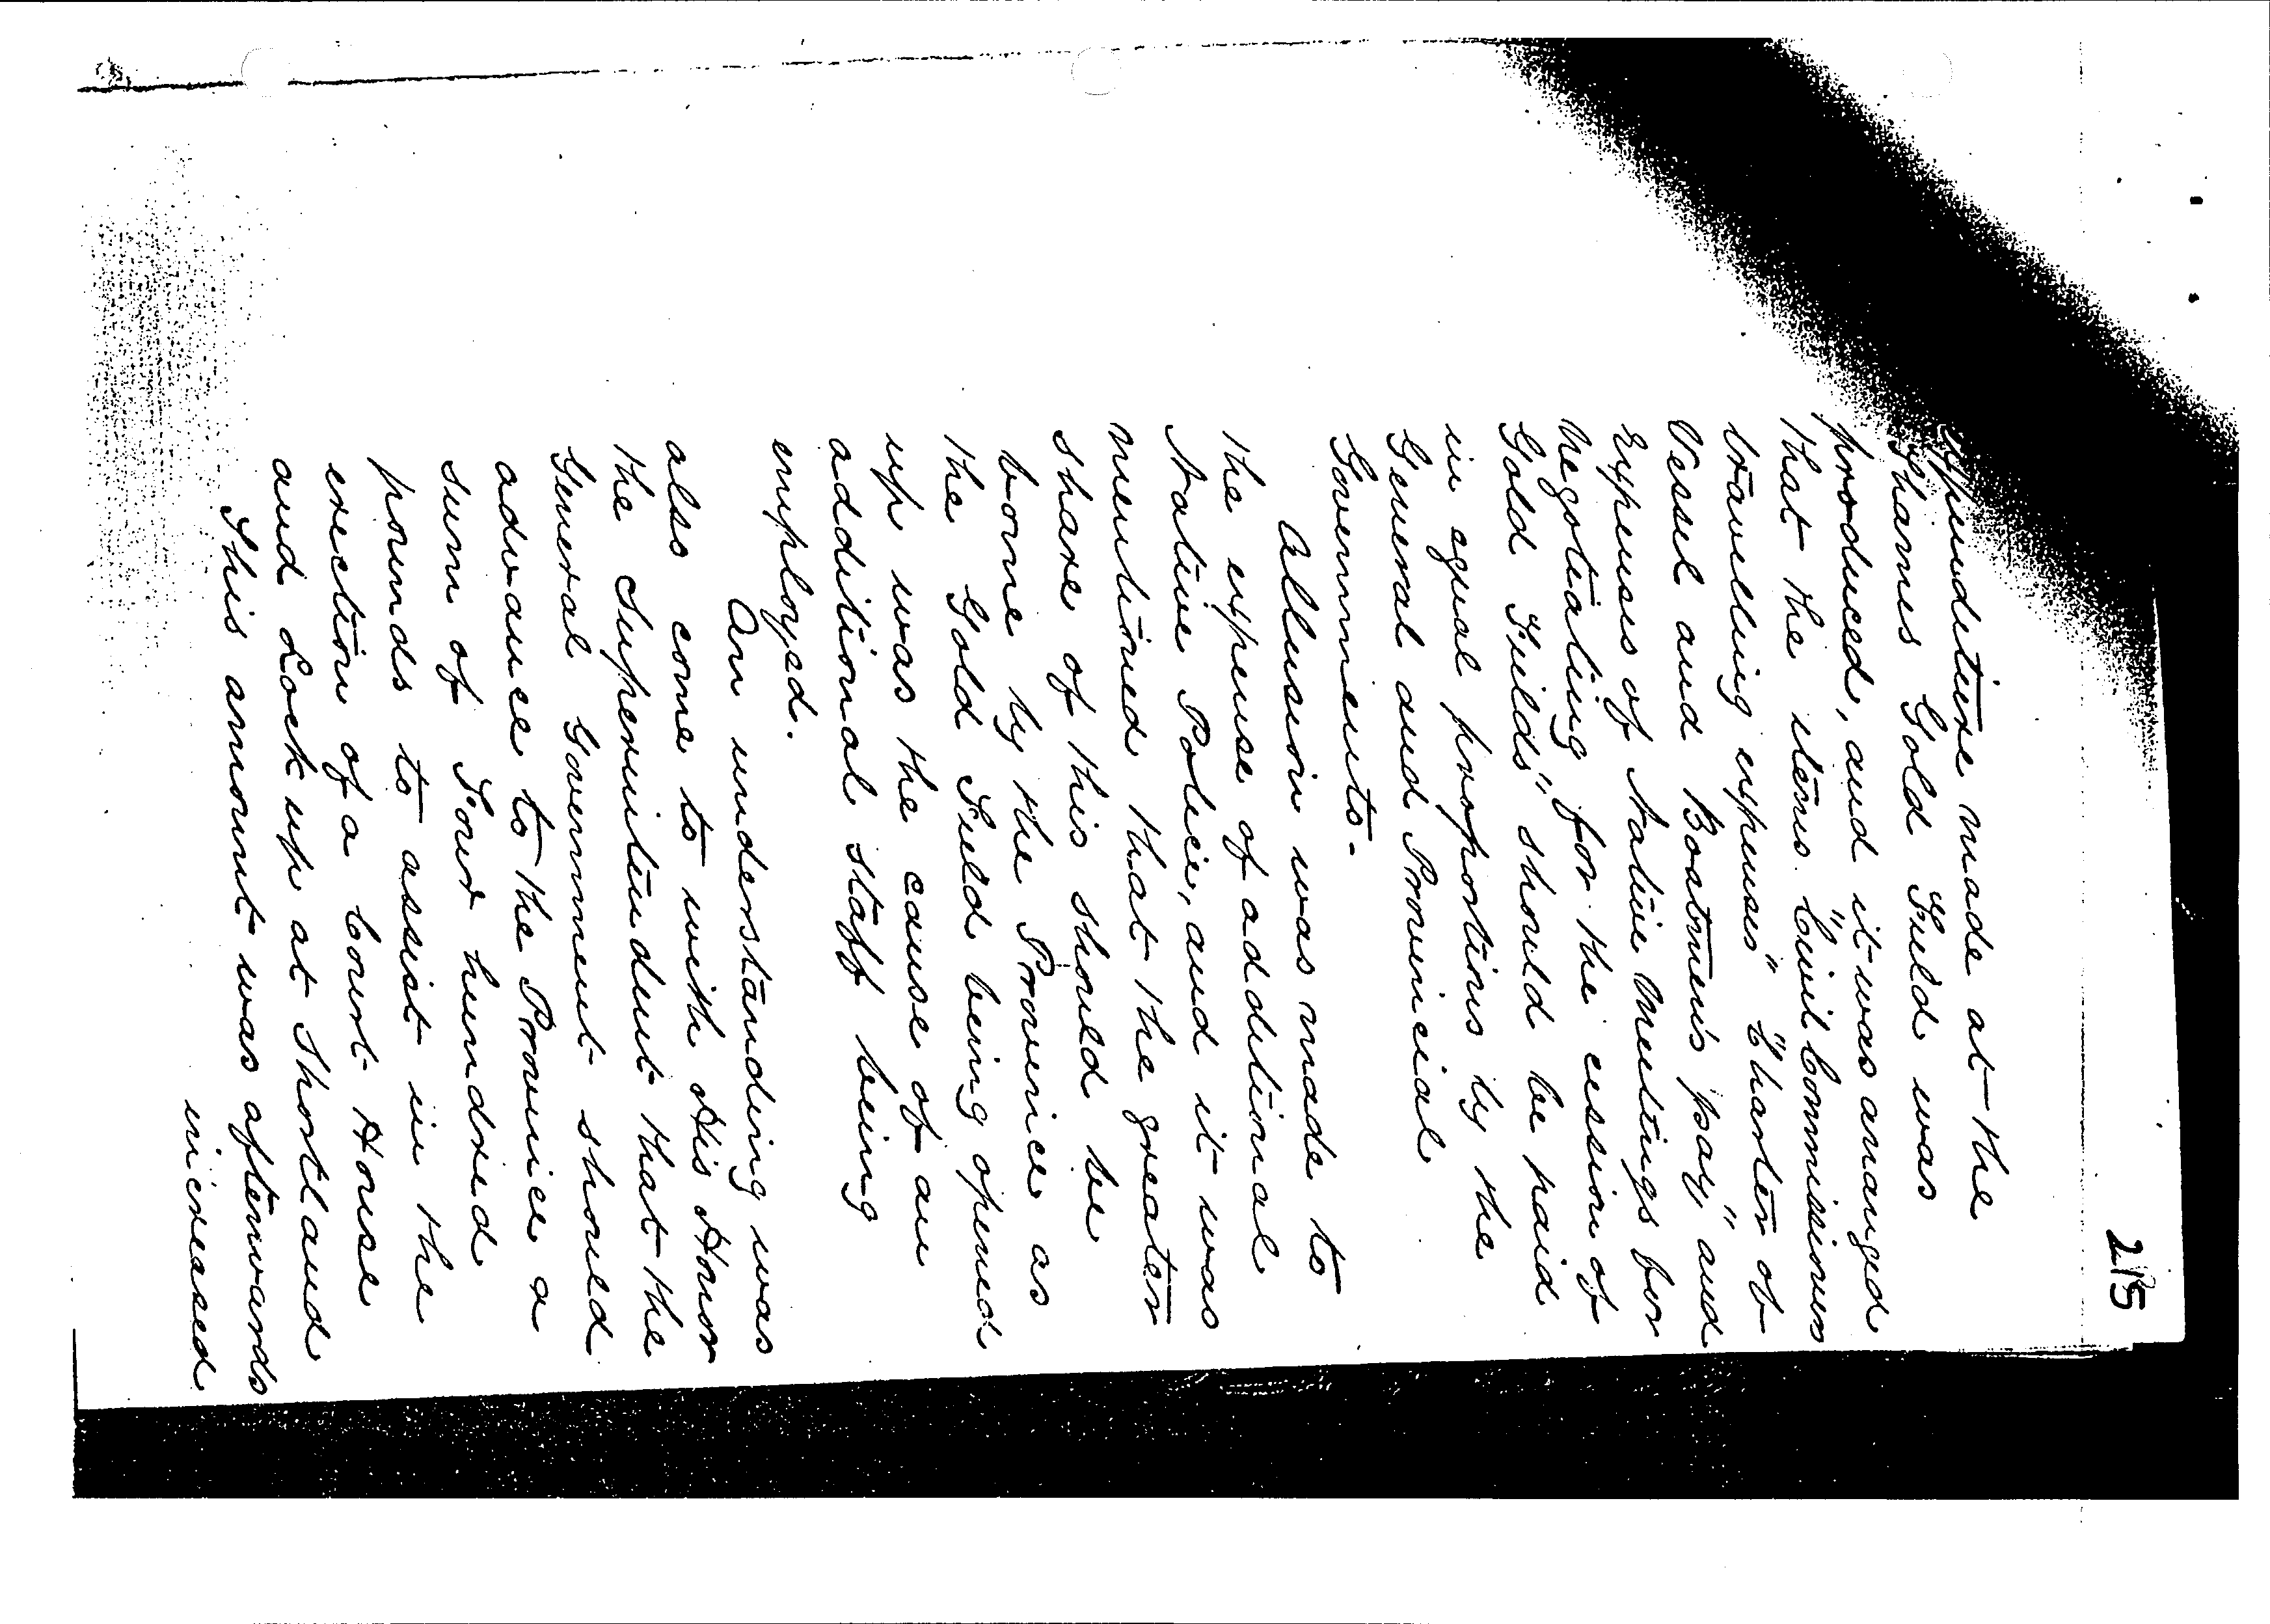 215
expenditure made at the
Thames Gold Field was
produced, and it was arranged
that the items "Civil Commissioners
travelling expenses" "Charter of
Vessel and Boatmen's pay" and
Expenses of Native Meetings for
Negotiating for the cession of
Gold Fields" should be paid
in equal proportions by the
General and Provincial
Governments.
Allusion was made to
the expense of additional
Native Police, and it was
mentioned that the greater
share of this should be
borne by the Province as
the Gold Field being opened
up was the cause of an
additional staff being
employed.
An understanding was
also come to with His Honor
the Superintendent that the
General Government should
advance to the Province a
sum of Four hundred
pounds to assist in the
erection of a Court House
and Lock up at Shortland
This amount was afterwards
increased